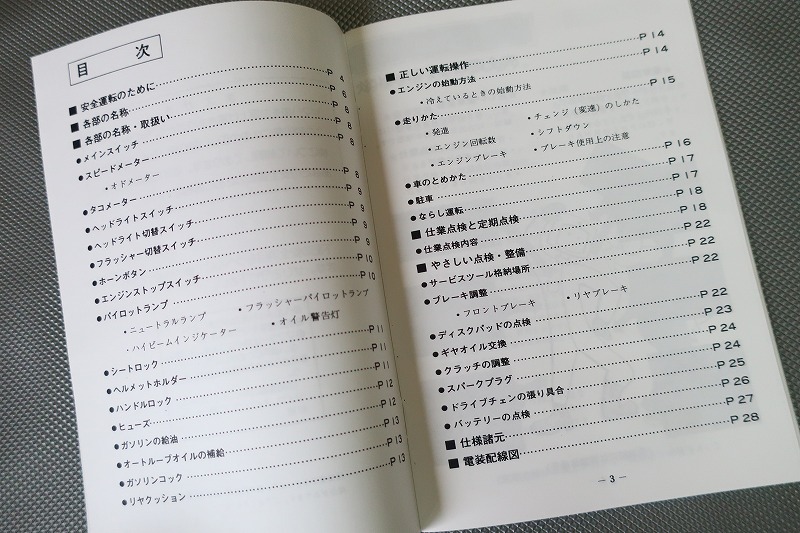 目 次
■ 安全運転のために……P 4
■ 各部の名称……P 6
■ 各部の名称・取扱い……P 8
●メインスイッチ……P 8
●スピードメーター……P 8
・オドメーター
●タコメーター……P 8
●ヘッドライトスイッチ……P 9
●ヘッドライト切替スイッチ……P 9
●フラッシャー切替スイッチ……P 9
●ホーンボタン……P 9
●エンジンストップスイッチ……P10
●パイロットランプ……P10
・ニュートラルランプ ・フラッシャーパイロットランプ
・ハイビームインジケーター ・オイル警告灯
●シートロック……P11
●ヘルメットホルダー……P11
●ハンドルロック……P11
●ヒューズ……P12
●ガソリンの給油……P12
●オートルーブオイルの補給……P13
●ガソリンコック……P13
●リヤクッション……P13
■ 正しい運転操作……P14
●エンジンの始動方法……P14
・冷えているときの始動方法
●走りかた……P15
・発進 ・チェンジ（変速）のしかた
・エンジン回転数 ・シフトダウン
・エンジンブレーキ ・ブレーキ使用上の注意
●車のとめかた……P16
●駐車……P17
●ならし運転……P17
■ 仕業点検と定期点検……P18
●仕業点検内容……P18
■ やさしい点検・整備……P22
●サービスツール格納場所……P22
●ブレーキ調整……P22
・フロントブレーキ ・リヤブレーキ
●ディスクパッドの点検……P22
●ギヤオイル交換……P23
●クラッチの調整……P24
●スパークプラグ……P24
●ドライブチェンの張り具合……P25
●バッテリーの点検……P26
■ 仕様諸元……P27
■ 電装配線図……P28
— 3 —